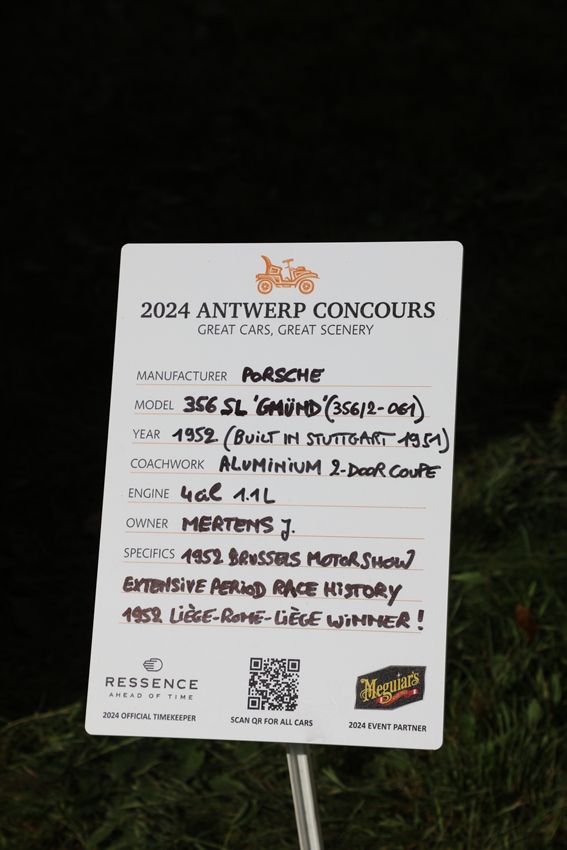 2024 ANTWERP CONCOURS
GREAT CARS, GREAT SCENERY
MANUFACTURER PORSCHE
MODEL 356 SL 'GMÜND' (356/2-061)
YEAR 1952 (BUILT IN STUTTGART 1951)
COACHWORK ALUMINIUM 2-DOOR COUPE
ENGINE 4cil 1.1L
OWNER MERTENS J.
SPECIFICS 1952 BRUSSELS MOTORSHOW
EXTENSIVE PERIOD RACE HISTORY
1952 LIÈGE-ROME-LIÈGE WINNER !
RESSENCE
AHEAD OF TIME
2024 OFFICIAL TIMEKEEPER
SCAN QR FOR ALL CARS
Meguiar's
2024 EVENT PARTNER